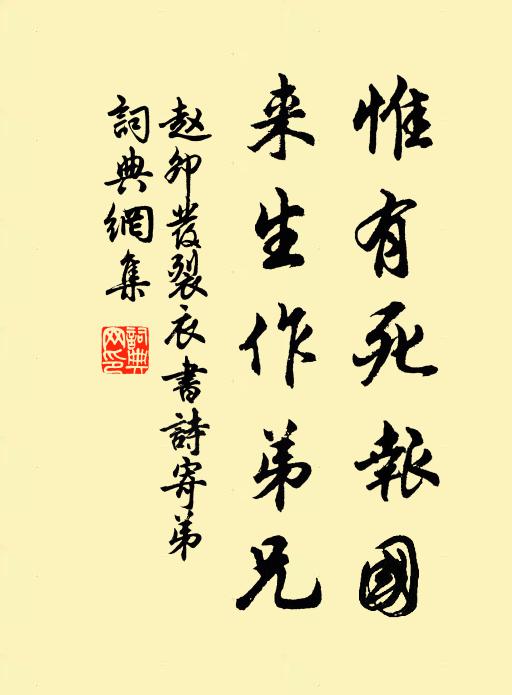 惟有死報國
来生作弟兄
赵卯發裂衣書詩寄弟
詞典網集
詞典
网印